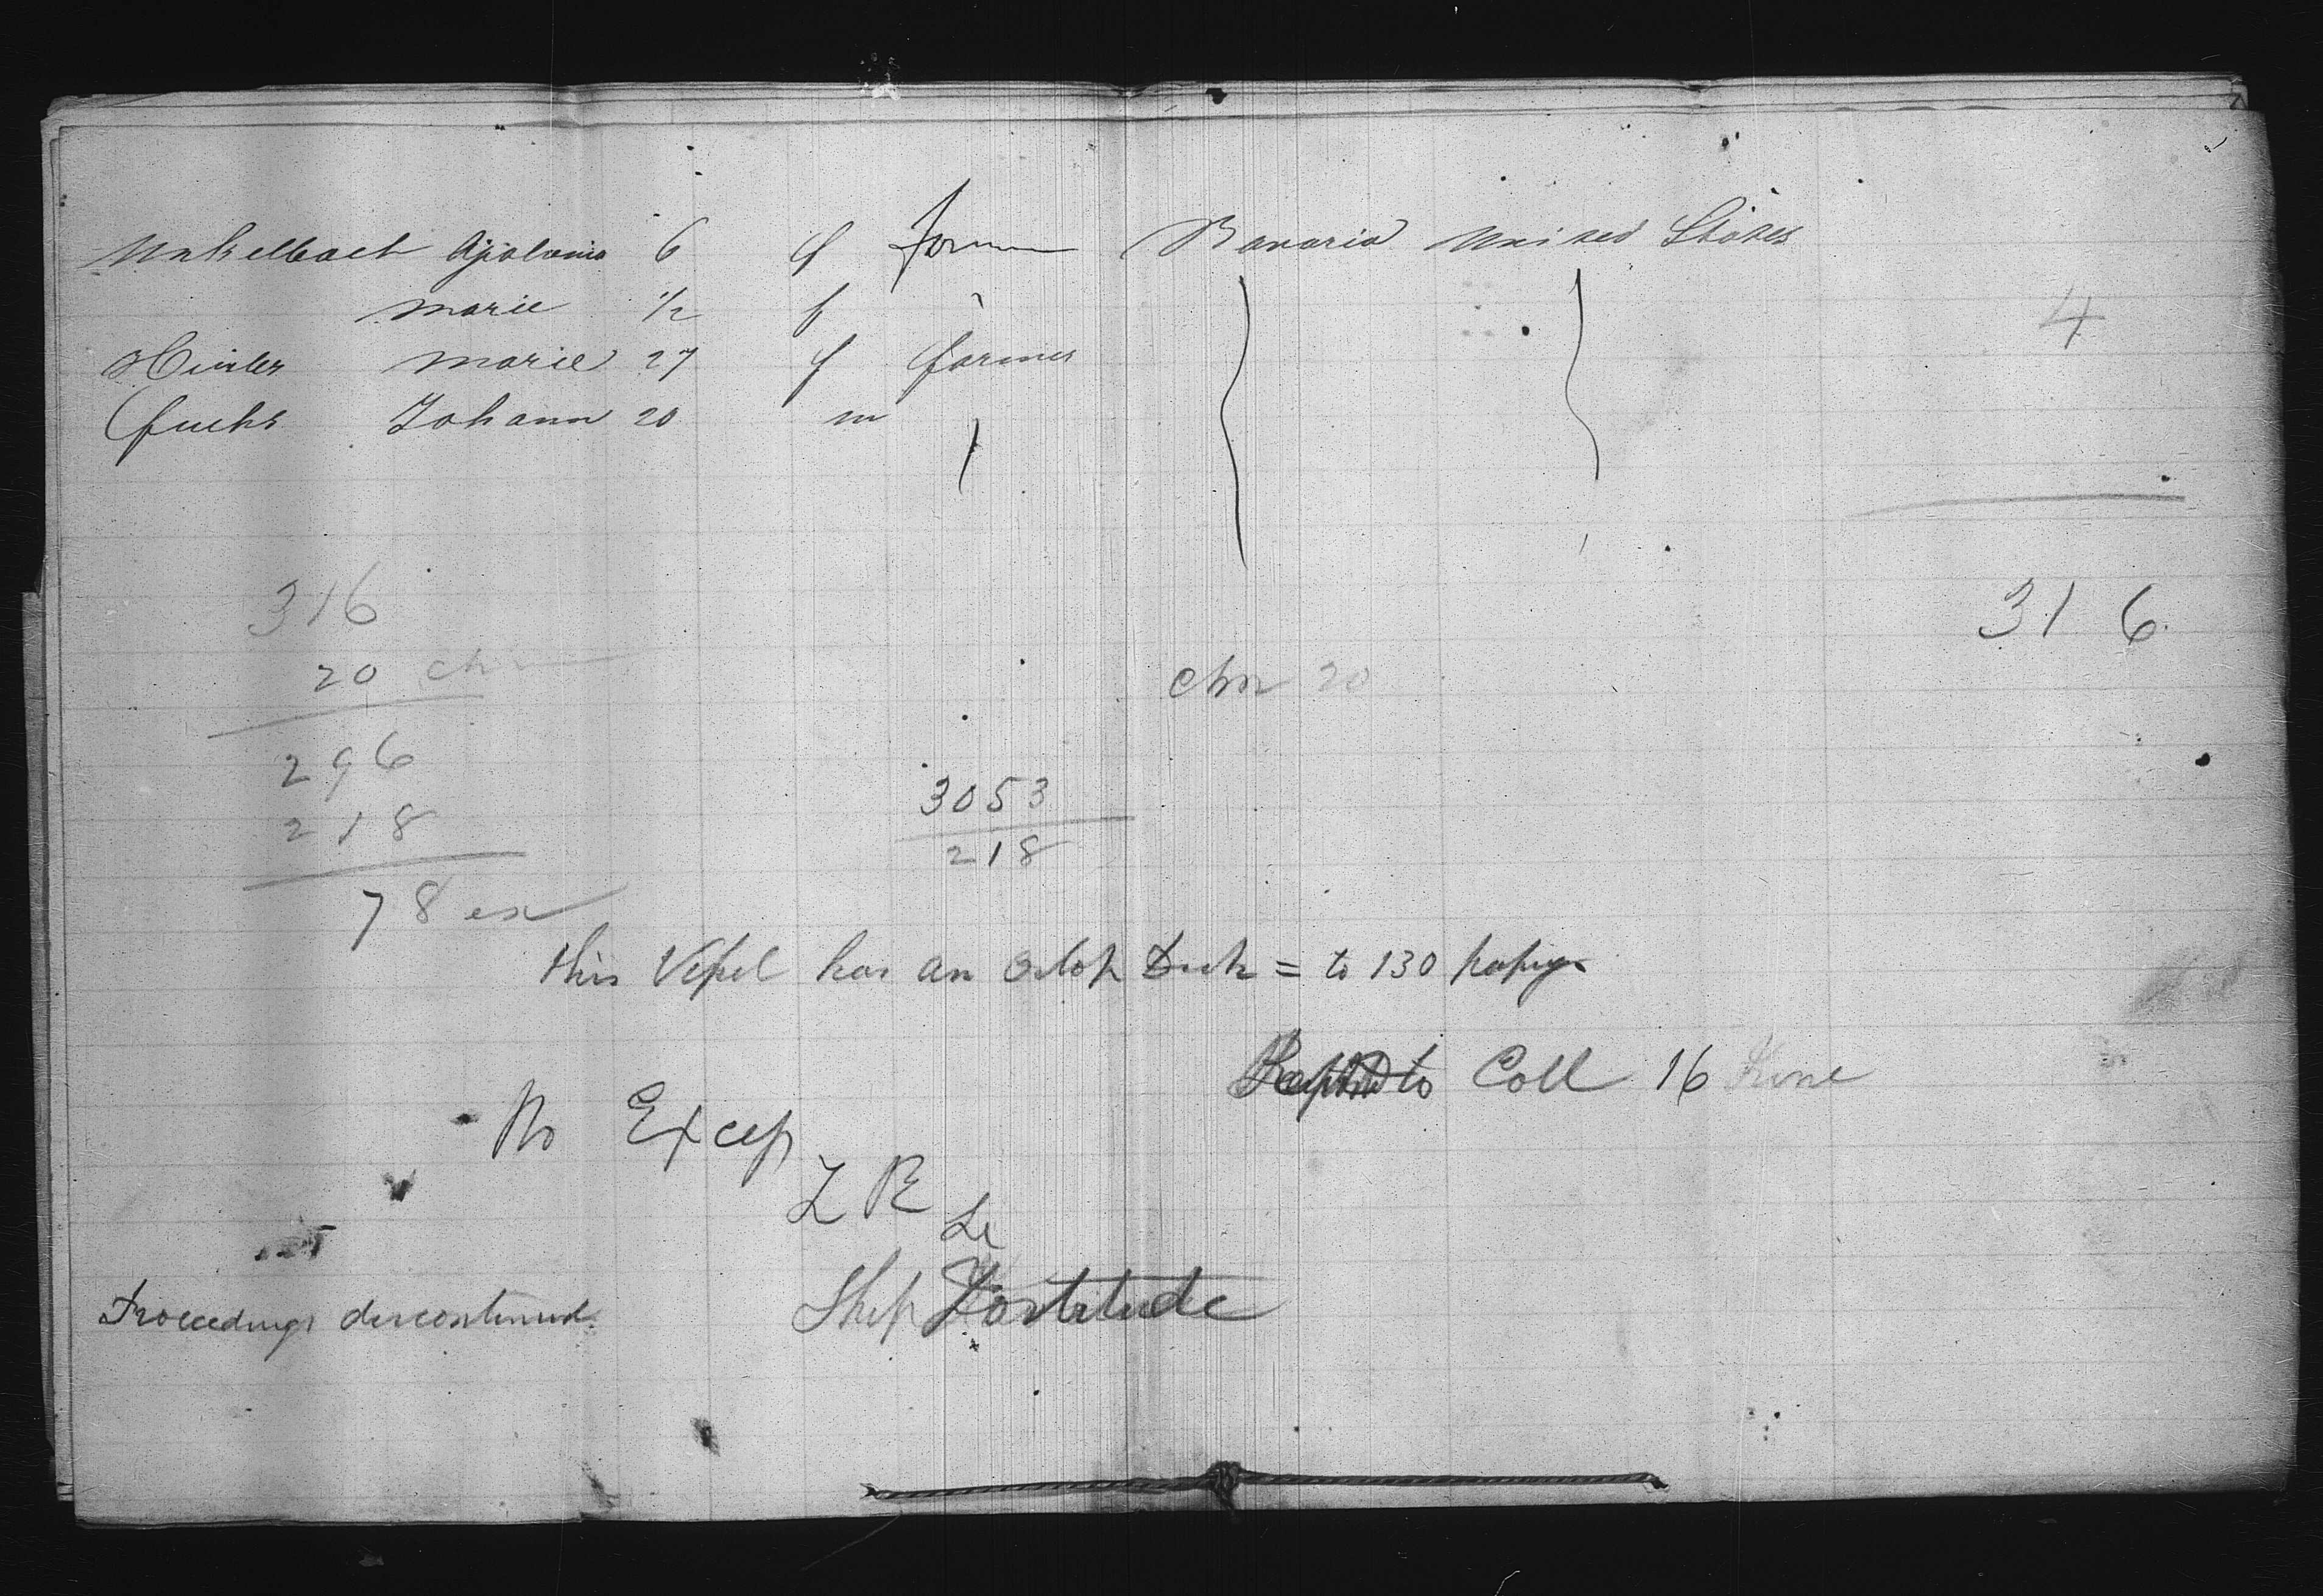 Unkelbach Apolonia 6 f Bavaria United States
Marie 1/2 f
4
Marie 27 f farmer
Fuchs Johann 20 m
316
316
20 ch
chn 20
296
3053
218
218
78 ex
this Vessel has an Orlop Deck = to 130 passgrs
to Coll 16 June
No Excep
Proceedings discontinued
Ship Fortitude